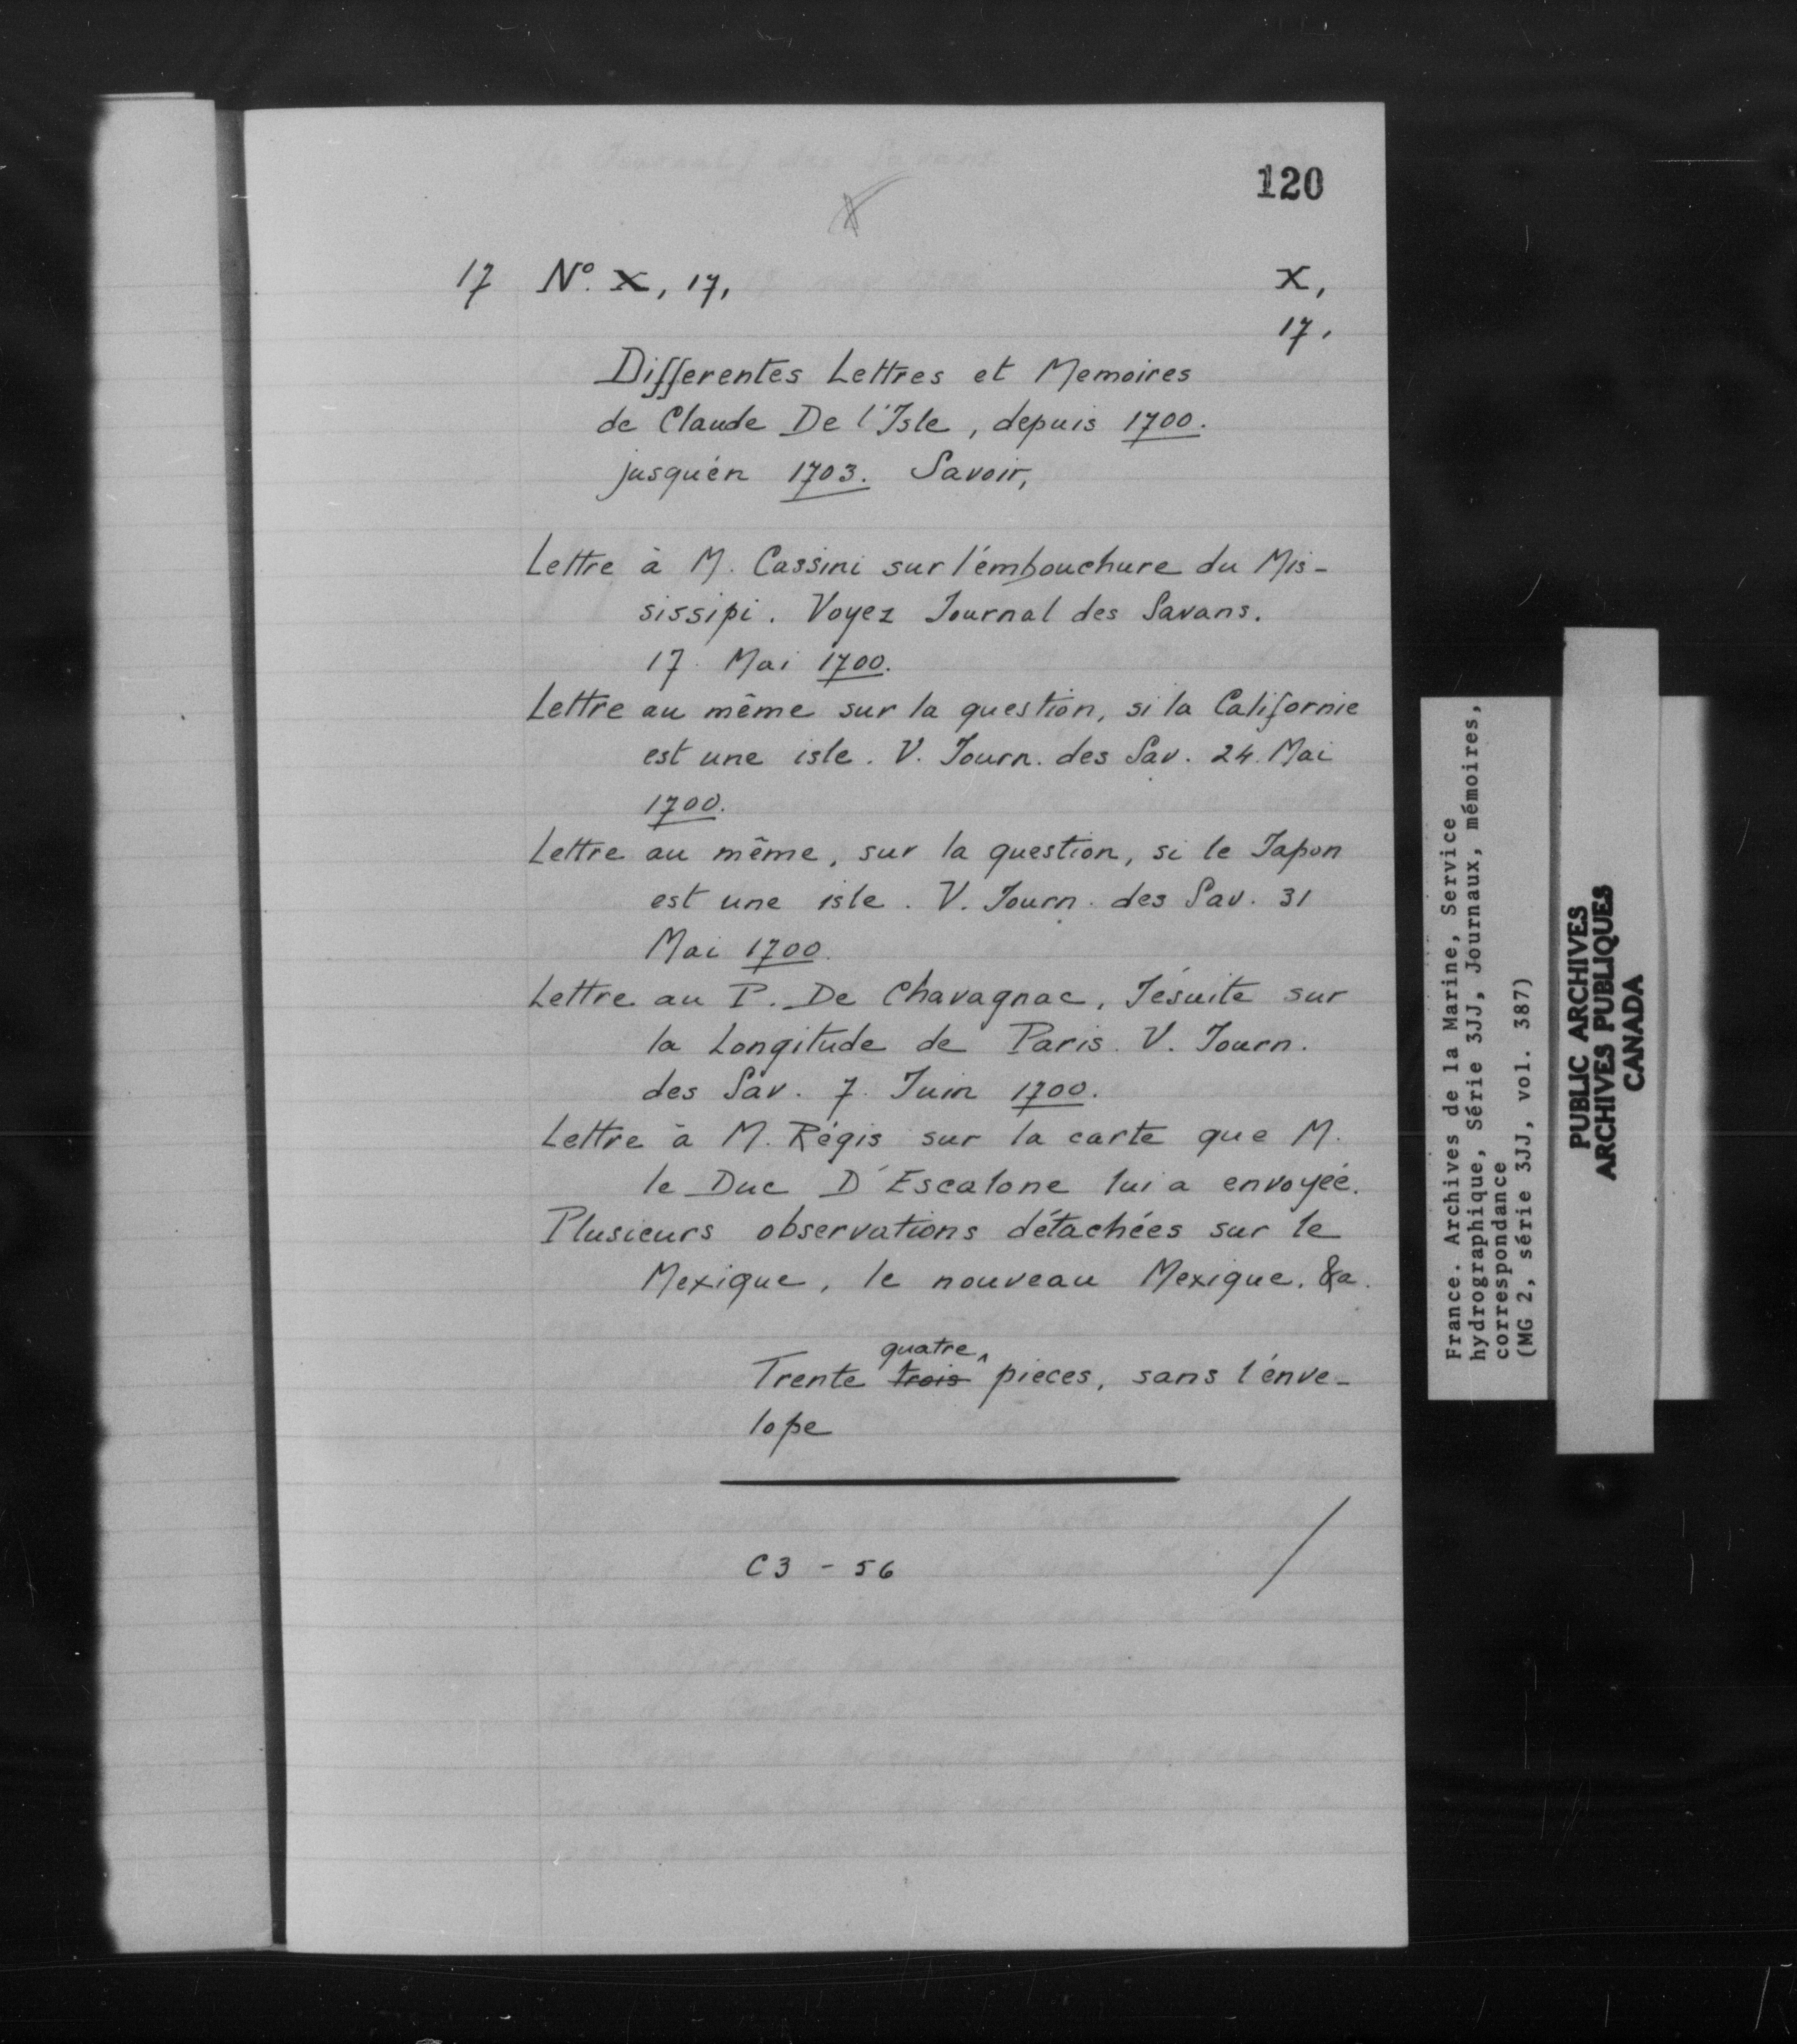 120
17 No. X, 17, X,
17.
Differentes Lettres et Memoires
de Claude De l'Isle, depuis 1700.
jusqu'én 1703. Savoir,
Lettre à M. Cassini sur l'émbouchure du Mis-
sissipi. Voyez Journal des Savans.
17. Mai 1700.
Lettre au même sur la question, si la Californie
est une isle. V. Journ. des Sav. 24. Mai
1700.
Lettre au même, sur la question, si le Japon
est une isle. V. Journ. des Sav. 31
Mai 1700.
Lettre au P. De Chavagnac, Jésuite sur
la Longitude de Paris. V. Journ.
des Sav. 7. Juin 1700.
Lettre à M. Régis sur la carte que M.
le Duc D'Escalone lui a envoyée.
Plusieurs observations détachées sur le
Mexique, le nouveau Mexique. &a.
quatre
Trente trois pieces, sans l'énve-
lope
C3 - 56
France. Archives de la Marine, Service
hydrographique, Série 3JJ, Journaux, mémoires,
correspondance
(MG 2, série 3JJ, vol. 387)
PUBLIC ARCHIVES
ARCHIVES PUBLIQUES
CANADA